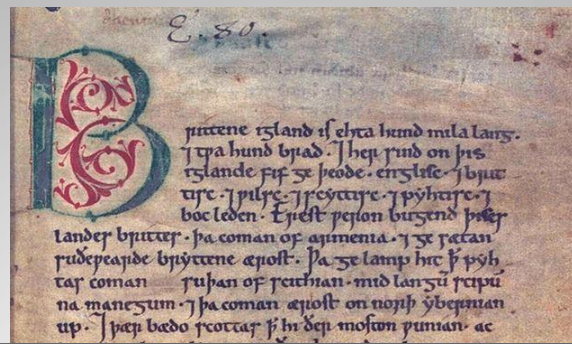 E. 80.
Brittene igland is ehta hund mila lang.
⁊ tƿa hund brad. ⁊ her sind on þis
iglande fif ge þeode. englisc. ⁊ brit
tisc. ⁊ ƿilsc. ⁊ scyttisc. ⁊ pyhtisc. ⁊
boc leden. Erest ƿeron bugend þises
landes brittes. þa coman of armenia. ⁊ ge sætan
suðeƿearde bryttene ærost. Þa ge lamp hit ꝥ pyh
tas coman suþan of scithian. mid langū scipū
na manegum. ⁊ þa coman ærost on norþ ẏbernian
up. ⁊ þær bædo scottas ꝥ hi ðer moston ƿunian. ac